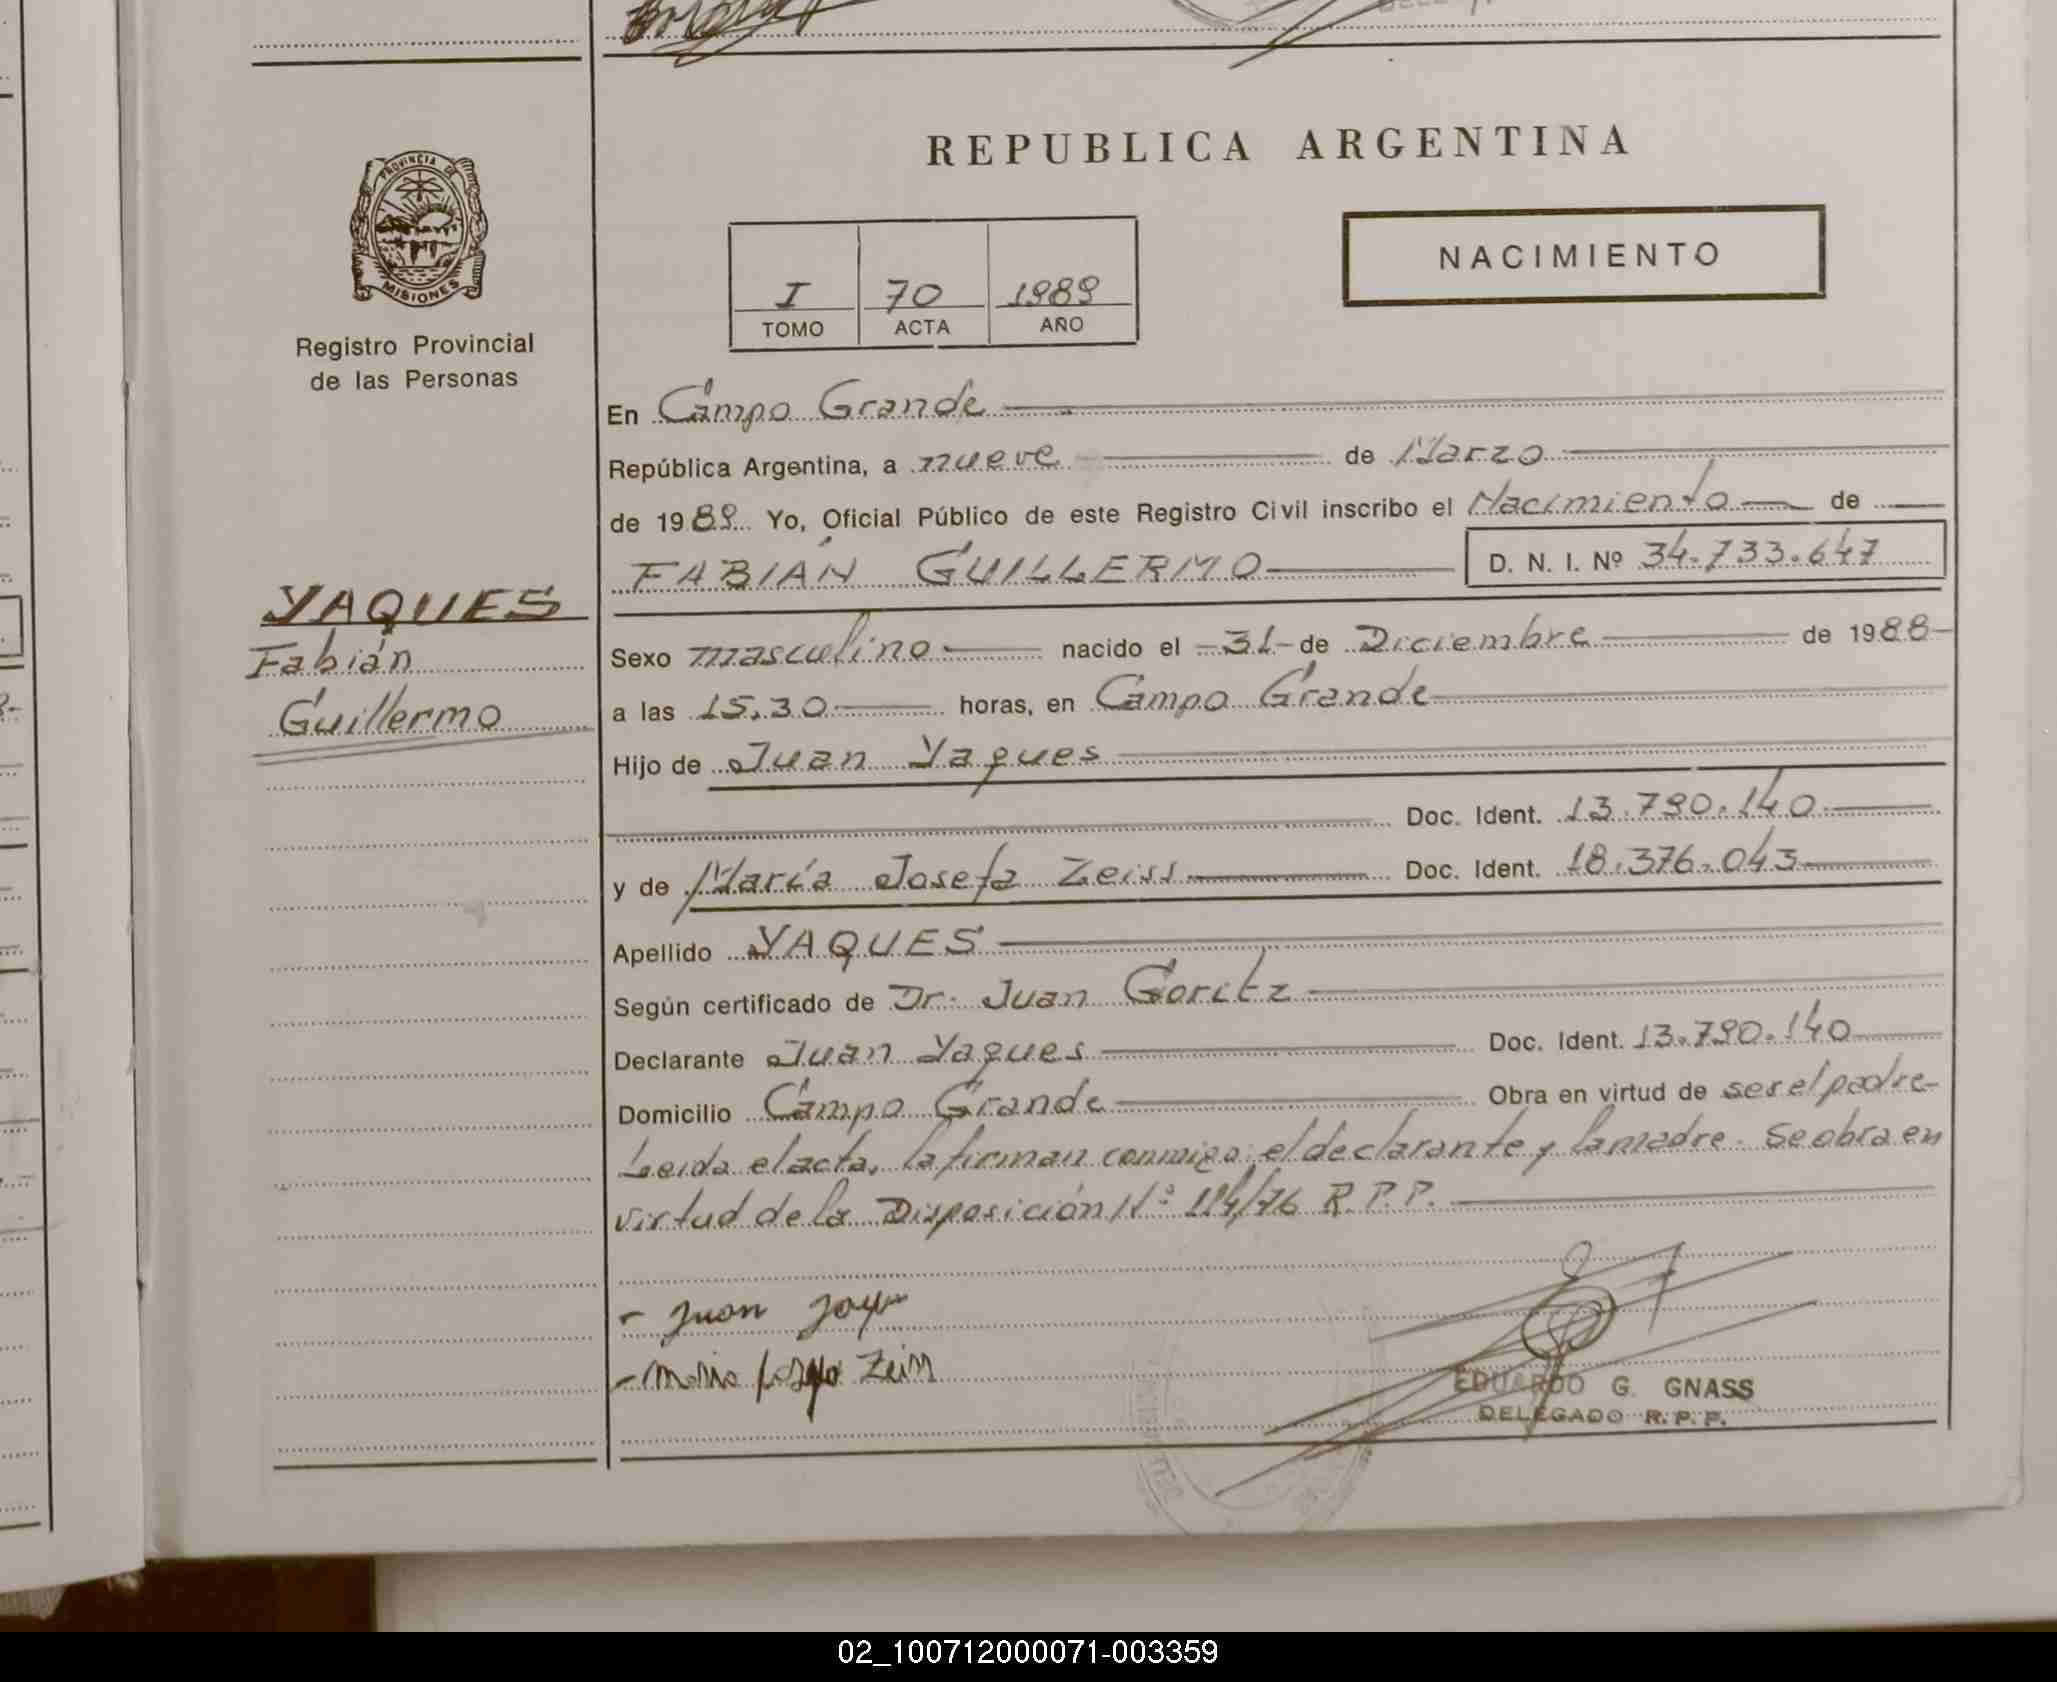 REPUBLICA ARGENTINA
PROVINCIA DE
MISIONES
Registro Provincial
de las Personas
NACIMIENTO
I 70 1989
TOMO ACTA AÑO
En Campo Grande
República Argentina, a nueve de Marzo
de 1989 Yo, Oficial Público de este Registro Civil inscribo el Nacimiento de
FABIÁN GUILLERMO D. N. I. Nº 34.733.647
YAQUES
Fabián
Guillermo
Sexo masculino nacido el 31 de Diciembre de 1988
a las 15.30 horas, en Campo Grande
Hijo de Juan Yaques
Doc. Ident. 13.790.140
y de María Josefa Zeiss Doc. Ident. 18.376.043
Apellido YAQUES
Según certificado de Dr. Juan Goritz
Declarante Juan Yaques Doc. Ident. 13.790.140
Domicilio Campo Grande Obra en virtud de ser el padre
Leida el acta, la firman conmigo: el declarante y la madre. Se obra en
virtud de la Disposición Nº 114/76 R.P.P.
- Juan
- Zeiss
EDUARDO G. GNASS
DELEGADO R. P. P.
02_100712000071-003359